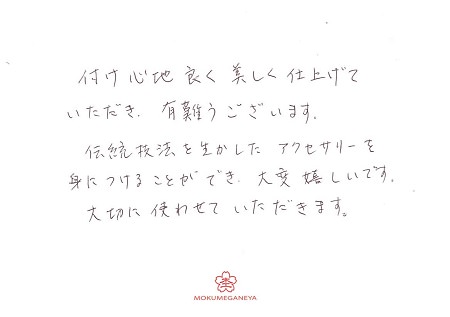 付け心地良く美しく仕上げて
いただき、有難うございます。
伝統技法を生かした アクセサリーを
身につけることができ、大変嬉しいです。
大切に使わせていただきます。
MOKUMEGANEYA